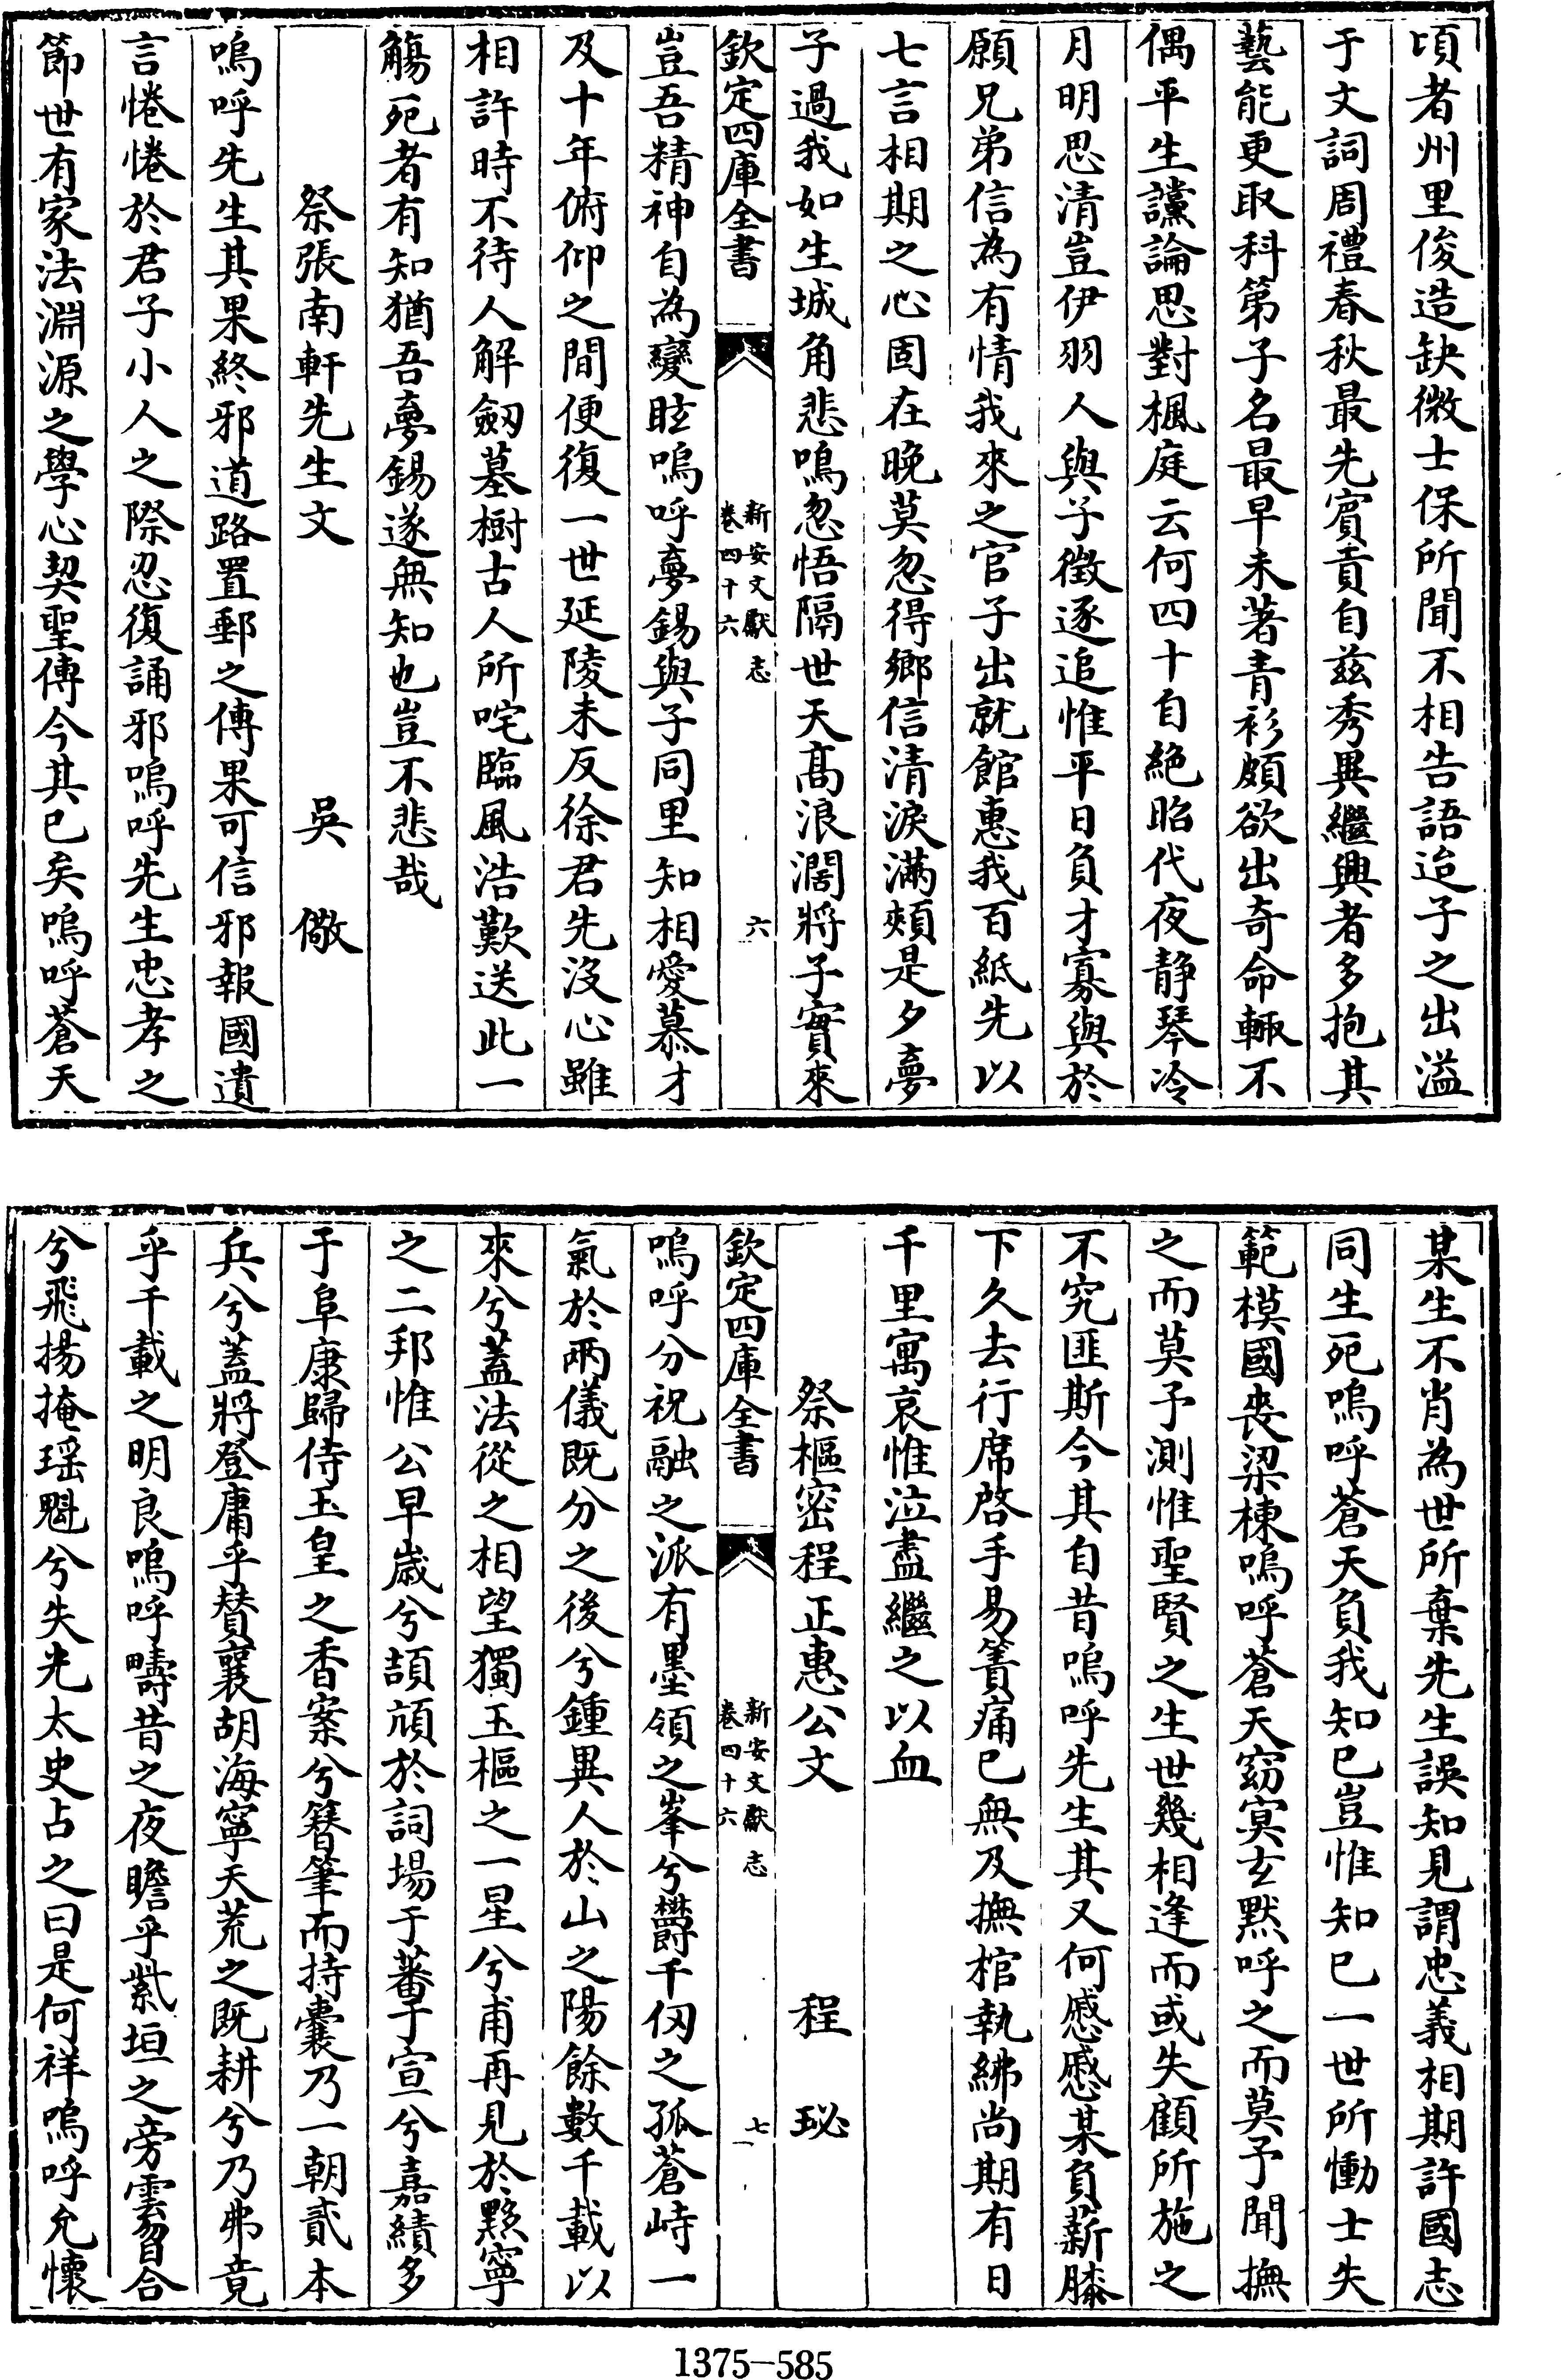 頃者州里俊造缺微士保所聞不相告語迨子之出溢
于文詞周禮春秋最先賔貢自茲秀異繼興者多抱其
藝能更取科第子名最早未著青衫頗欲出奇命輒不
偶平生讜論思對楓庭云何四十自絶昭代夜静琴冷
月明思清豈伊羽人與子徵逐追惟平日負才寡與於
願兄弟信為有情我來之官子出就館惠我百紙先以
七言相期之心固在晚莫忽得鄉信清淚滿頰是夕夢
子過我如生城角悲鳴忽悟隔世天髙浪濶將子實來
欽定四庫全書
新安文獻志
卷四十六
六
豈吾精神自為變眩嗚呼夢錫與子同里知相愛慕才
及十年俯仰之間便復一世延陵未反徐君先沒心雖
相許時不待人解劔墓樹古人所咤臨風浩歎送此一
觴死者有知猶吾夢錫遂無知也豈不悲哉
祭張南軒先生文 吳儆
嗚呼先生其果終邪道路置郵之傳果可信邪報國遺
言惓惓於君子小人之際忍復誦邪嗚呼先生忠孝之
節世有家法淵源之學心契聖傳今其已矣嗚呼蒼天
某生不肖為世所棄先生誤知見謂忠義相期許國志
同生死嗚呼蒼天負我知已豈惟知已一世所慟士失
範模國喪梁棟嗚呼蒼天窈冥玄黙呼之而莫予聞撫
之而莫予測惟聖賢之生世幾相逢而或失顧所施之
不究匪斯今其自昔嗚呼先生其又何慼慼某負薪膝
下久去行席啓手易簀痛已無及撫棺執紼尚期有日
千里寓哀惟泣盡繼之以血
祭樞密程正惠公文 程珌
欽定四庫全書
新安文獻志
卷四十六
七
嗚呼分祝融之派有墨嶺之峯兮欝千仭之孤蒼峙一
氣於兩儀既分之後兮鍾異人於山之陽餘數千載以
來兮蓋法從之相望獨玉樞之一星兮甫再見於黟寧
之二邦惟公早歲兮頡頏於詞場于蕃于宣兮嘉績多
于阜康歸侍玉皇之香案兮簪筆而持囊乃一朝貳本
兵兮蓋將登庸乎贊襄胡海寧天荒之既耕兮乃弗竟
乎千載之明良嗚呼疇昔之夜瞻乎紫垣之旁雲㫺合
兮飛揚掩瑶魁兮失光太史占之曰是何祥嗚呼允懷
1375-585